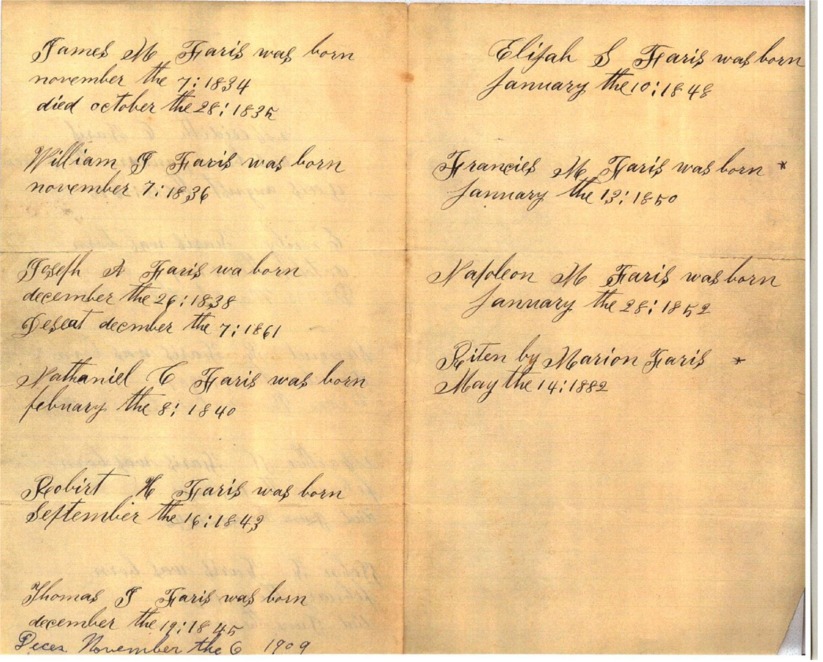 James M Faris was born
november the 7: 1834
died october the 28: 1835
William J Faris was born
november 7: 1836
Joseph A Faris wa born
december the 26: 1838
Deseat decmber the 7: 1861
Nathaniel C Faris was born
febuary the 8: 1840
Robirt H Faris was born
September the 16: 1843
Thomas J Faris was born
december the 19: 1845
Deces November the 6 1909
Elijah S Faris was born
January the 10: 1848
Francies M Faris was born *
January the 13: 1850
Napoleon M Faris was born
January the 28: 1852
Riten by Marion Faris *
May the 14: 1882